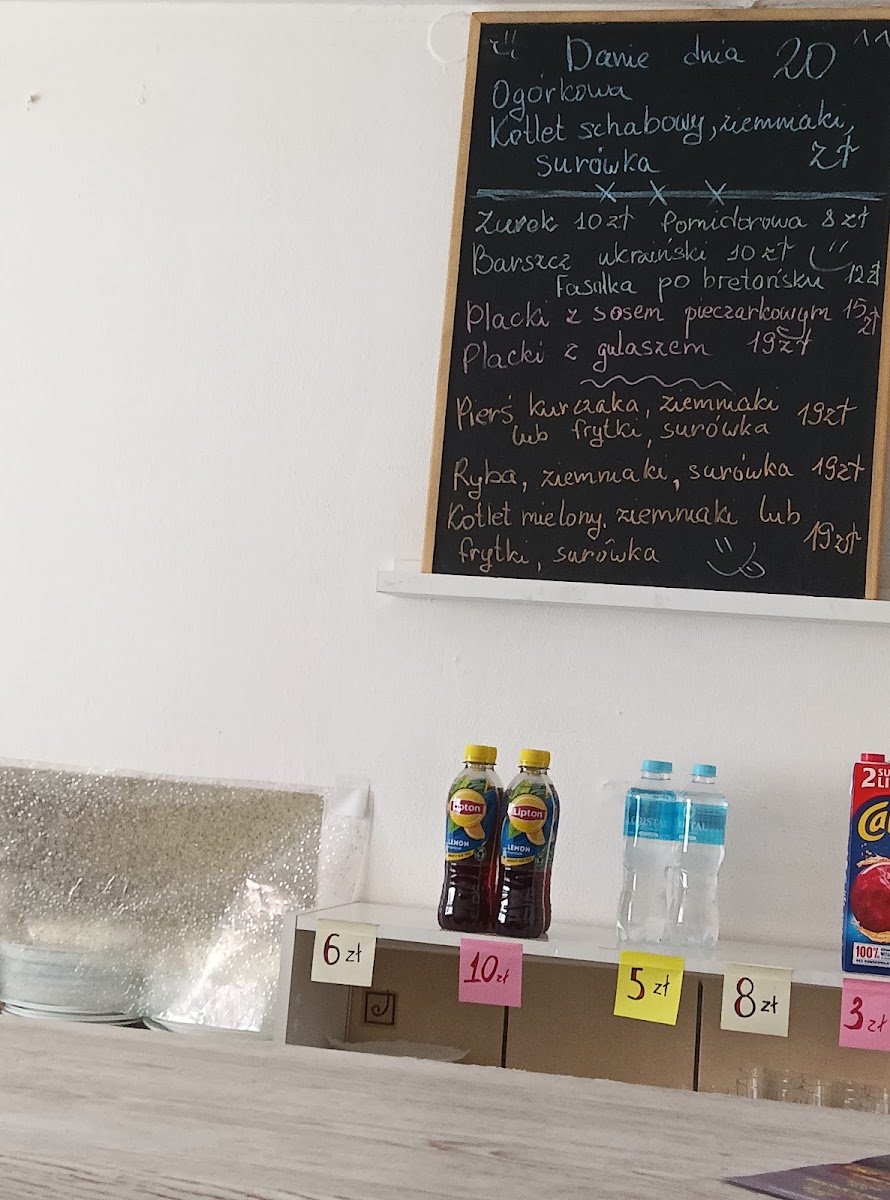 Danie dnia 20
Ogórkowa
Kotlet schabowy, ziemniaki,
surówka zł
Żurek 10 zł Pomidorowa 8 zł
Barszcz ukraiński 10 zł
Fasolka po bretońsku 12 zł
Placki z sosem pieczarkowym 15 zł
Placki z gulaszem 19 zł
Pierś kurczaka, ziemniaki
lub frytki, surówka 19 zł
Ryba, ziemniaki, surówka 19 zł
Kotlet mielony, ziemniaki lub
frytki, surówka 19 zł
Lipton
LEMON
Lipton
LEMON
2
100%
6 zł
10 zł
5 zł
8 zł
3 zł